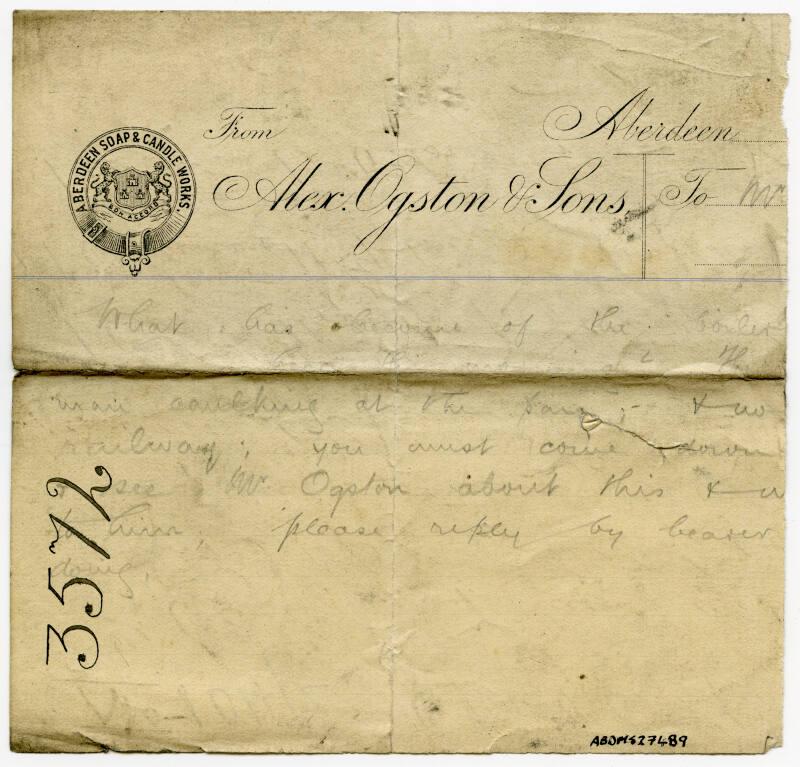 ABERDEEN SOAP & CANDLE WORKS.
BON ACCORD
From Aberdeen
Alex. Ogston & Sons To Mr
What has become of the boiler
man caulking at the &
railway; you must come down
see Mr Ogston about this &
to him, please reply by bearer
doing.
357/2
ABDMS27489